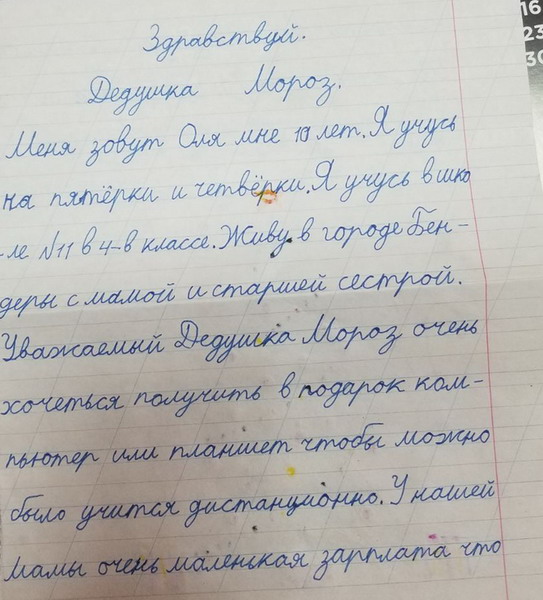 16
23
30
Здравствуй.
Дедушка Мороз.
Меня зовут Оля мне 10 лет. Я учусь
на пятёрки и четвёрки. Я учусь в шко
-ле №11 в 4-в классе. Живу в городе Бен-
деры с мамой и старшей сестрой.
Уважаемый Дедушка Мороз очень
хочеться получить в подарок ком-
пьютер или планшет чтобы можно
было учится дистанционно. У нашей
мамы очень маленькая зарплата что